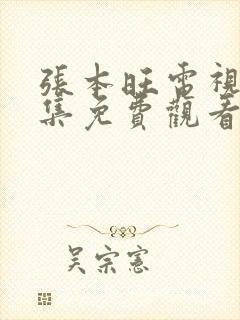 張本旺電視
集免費觀看
吳宗憲